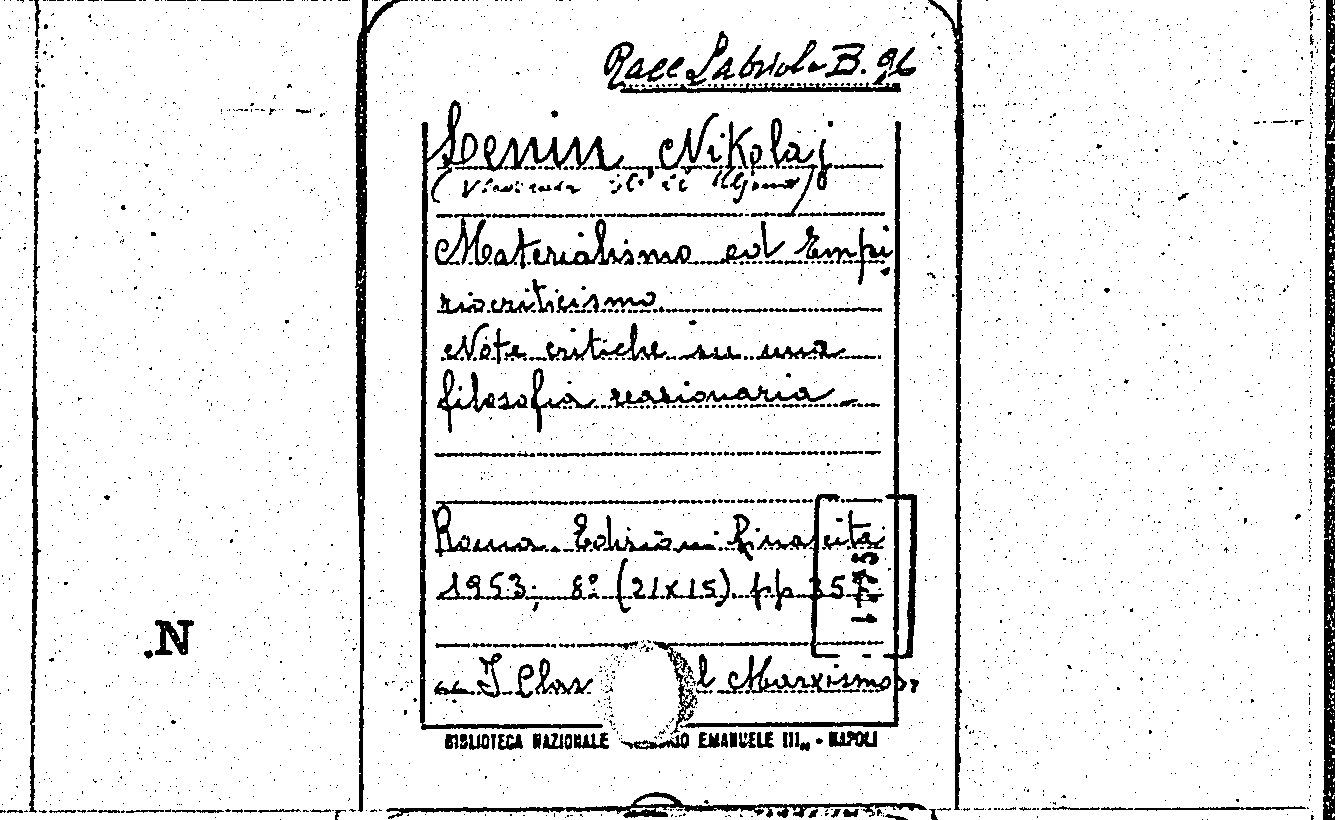 Racc Labriola B. 96
Lenin Nikolaj
Materialismo ed Empi
riocriticismo
Note critiche su una
filosofia reazionaria -
Roma. Edizioni Rinascita
1953; 8º (21x15). pp 35
17775
"I Clas l Marxismo"
BIBLIOTECA NAZIONALE IO EMANUELE III„ - NAPOLI
.N